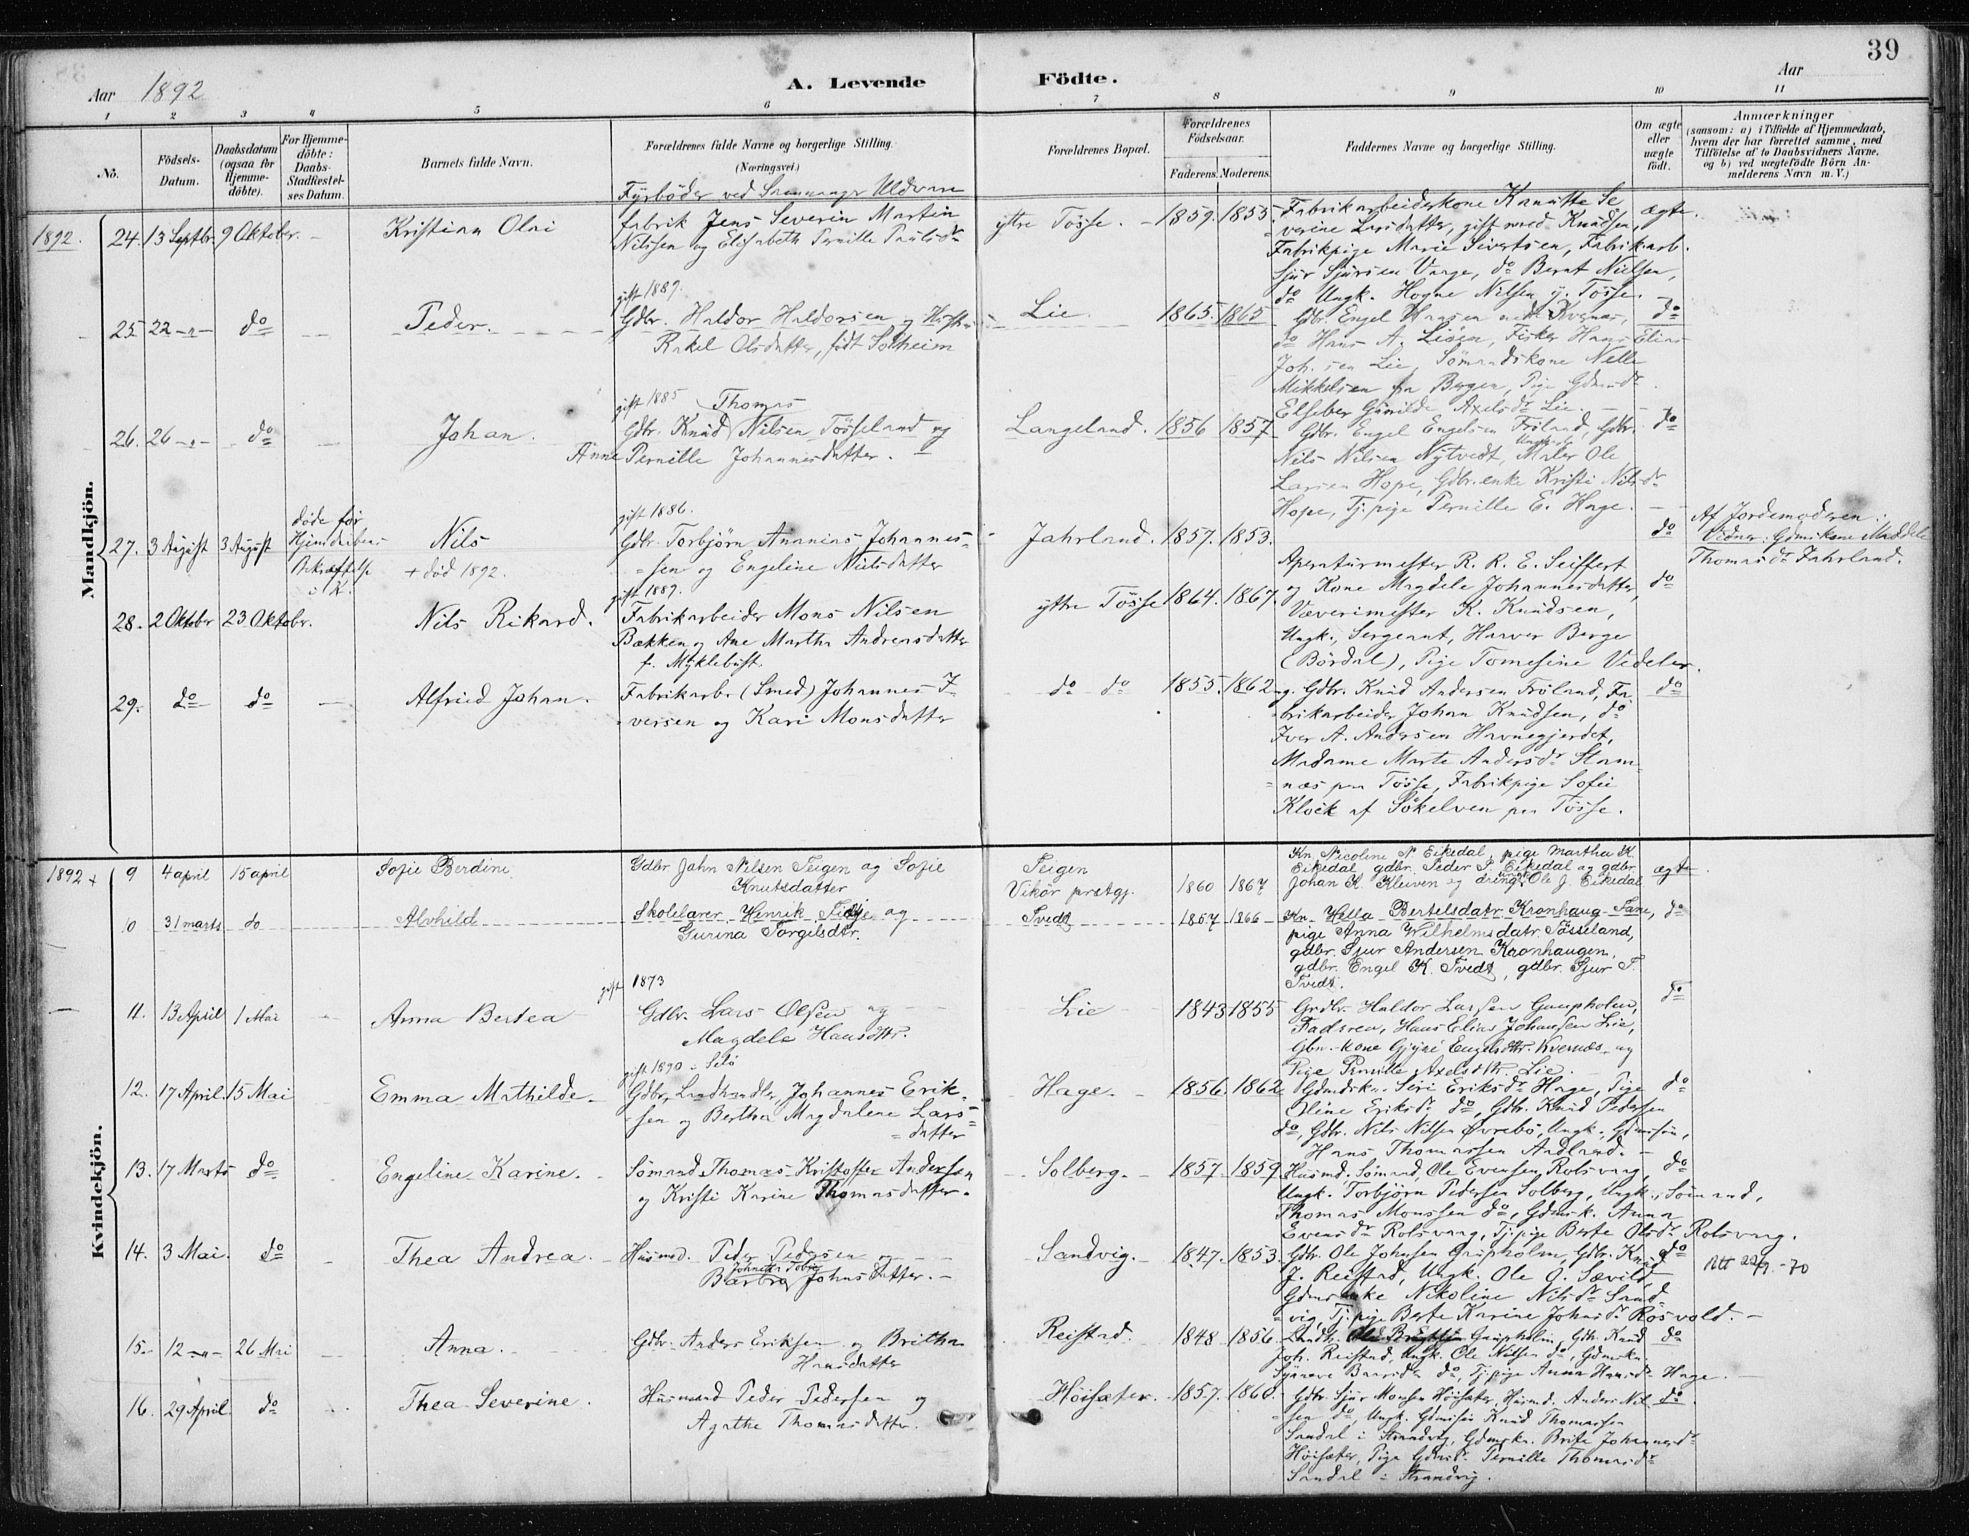 39
Aar 1892
A. Levende Födte.
Aar
1 2 3 4 5 6 7 8 9 10 11
Nô.
Födsels-Datum.
Daabsdatum (ogsaa for Hjemme-döbte).
For Hjemme-döbte: Daabs-Stadfæstel-ses Datum.
Barnets fulde Navn.
Forældrenes fulde Navne og borgerlige Stilling. (Næringsvei.)
Forældrenes Bopæl.
Forældrenes Födselsaar.
Faderens. Moderens.
Faddernes Navne og borgerlige Stilling.
Om ægte eller uægte födt.
Anmærkninger
(saasom: a) i Tilfælde af Hjemmedaab,
hvem der har forrettet samme, med
Tilföielse af to Daabsvidners Navne,
og b) ved uægtefödte Börn An-
melderens Navn m. V.)
Mandkjön.
1892. 24. 13 Septbr. 9 Oktober. – Kristian Olai
Fyrböder ved Samnanger Uldvare
fabrik Jens Severin Martin
Nilssen og Elisabeth Pernille Paulsdr
ytre Tösse. 1859. 1855
Fabrikarbeiderkone Kanutte Se
verine Larsdatter, gift med Knudsen,
Fabrikpige Marie Sivertsen, Fabrikarb.
Sjur Sjursen Vaage, do Bernt Nielsen,
do Ungk. Hogne Nilsen y. Tösse.
ægte.
25. 22 –"– do – Peder.
gift 1889.
Gdbr. Haldor Haldorsen og Hustru
Rakel Olsdatter, født Solheim
Lie. 1865. 1865
Gdbr. Engel Hansen Kvernæs,
do Hans A. Liöen, Fisker Hans Elias
Joh.sen Lie, Sömandskone Nelle
Mikkelsen fra Bergen, Pige Gdmdr
Elseber Gunilde Axelsdr Lie.
do
26. 26 –"– do – Johan.
gift 1885 Thomas
Gdbr. Knud Nilsen Tösseland og
Anne Pernille Johannesdatter.
Langeland. 1856 1857
Gdbr. Engel Engelsen Fröland, Gdbr.
Nils Nilsen Nytvedt, Maler Ole
Larsen Hope, Gdbr.enke Kristi Nilsdr
Hope, Tj.pige Pernille E. Hage.
do
27. 3 August 3 August
döde før
Nils
+ död 1892.
gift 1886.
Gdbr. Torbjörn Ananias Johannes-
sen og Engeline Nielsdatter
Jahrland. 1857. 1853. do
Af Jordemoderen.
Vidner: Gdmskone Maddele
Thomasdr Jahrland.
28. 2 Oktober 23 Oktober. Nils Rikard.
gift 1889.
Fabrikarbeider Mons Nilsen
Bækken og Ane Martha Andreasdatter
f. Myklebust.
ytre Tösse 1864. 1867.
Aperaturmester R. R. E. Seiffert
og Kone Magdele Johannesdatter,
Væverimester K. Knudsen,
Ungk., Sergeant, Haaver Berge
(Bördal), Pige Tomesine Vedeler.
do
29. do do – Alfried Johan.
Fabrikarbr (Smed) Johannes I-
versen og Kari Monsdatter
do do 1855. 1862
g. Gdbr. Knud Andersen Fröland, Fa-
brikarbeider Johan Knudsen, do
Iver A. Andersen Havnegjerdet,
Madame Marte Andersdr Stam-
næs pr Tösse, Fabrikpige Sofie
Klock af Sökelven pr Tösse.
do
Kvindekjön.
1892 9 4 april 15 april Sofie Berdine
Gdbr Jahn Nilsen Teigen og Sofie
Knutsdatter
Teigen
Vikör præstgj. 1860 1867
Kn. Nicoline N. Eikedal, pige Martha K.
Eikedal gdbr. Peder P. Eikedal og gdbr.
Johan K. Kleiven og dreng Ole J. Eikedal
ægte
10 31 marts do Alvhild
Skolelærer Henrik og
Gurina Torgilsdtr.
Tvedt 1867 1866
Kn. Hella Bertelsdatr Kronhaug Fane,
pige Anna Wilhelmsdatr. Tösseland,
gdbr. Sjur Andersen Kronhaugen,
gdbr. Engel K. Tvedt, gdbr. Sjur T.
Tvedt.
do
11. 13 April 1 Mai Anna Bertea
gift 1873
Gdbr. Lars Olsen og
Magdele Hansdtr.
Lie 1843 1855
Grdbr. Haldor Larsen Gaupholm,
Hans Elias Johansen Lie,
Gbr.-kone Engelsdtr. Kvernæs og
Pige Pernille Axelsdtr. Lie.
do
12. 17 April 15 Mai Emma Mathilde.
gift 1890
Gdbr, Landhandler, Johannes Erik-
sen og Bertha Magdalene Lars-
datter
Hage. 1856. 1862
Gdmdskn. Seri Eriksdr Hage, Pige
Oline Eriksdr do, Gdbr. Knud Pedersen
do, Gdbr. Nils Nilsen Övrebö, Ungk., Gdmsön,
Hans Thomassen Aadland.
do
13. 17 Marts do Engeline Karine.
Sömand Thomas Kristoffer Andersen
og Kristi Karine Thomasdatter.
Solberg. 1857. 1859
Husmd. Sömand, Ole Evensen Rolsvaag,
Ungk. Torbjörn Pedersen Solberg, Ungk., Sömand,
Thomas Monssen do, Gdmsk. Anna
Evensdr Rolsvaag, Tj.pige Berte Olsdr Rolsvaag.
do
14. 3 Mai. do Thea Andrea.
Husmd. Peder Pedersen og
Barbra Johnsdatter.
Sandvig. 1847. 1853.
Gdbr. Ole Johnsen Gaupholm, Gdbr. Knud
J. Reistad, Ungk. Ole O. Sævild
Nikoline Nilsdr Sand
vig, Tj.pige Berte Karine Johnsdr Rosvold.
do
15. 12 –"– 26 Mai Anna.
Gdbr. Anders Eriksen og Britha
Hansdatter
Reistad. 1848 1856.
Gaupholm, Gdbr. Knud
Joh. Reistad, Ungk. Ole Nilsen do, Gdmskn.
do, Tj.pige Anna Hansdr Hage.
do
16. 29 April. do Thea Severine.
Husmand Peder Pedersen og
Agathe Thomasdatter.
Höisæter. 1857. 1860.
Gdbr. Sjur Monsen Höisæter, Husmd. Anders Nil
sen do, Ungk. Gdmsön Knud Thomassen
Sandal i Strandvig, Gdmskn. Brita Johannesdr
Höisæter, Pige Gdmdr. Pernille Thomasdr
Sandal i Strandvig.
do